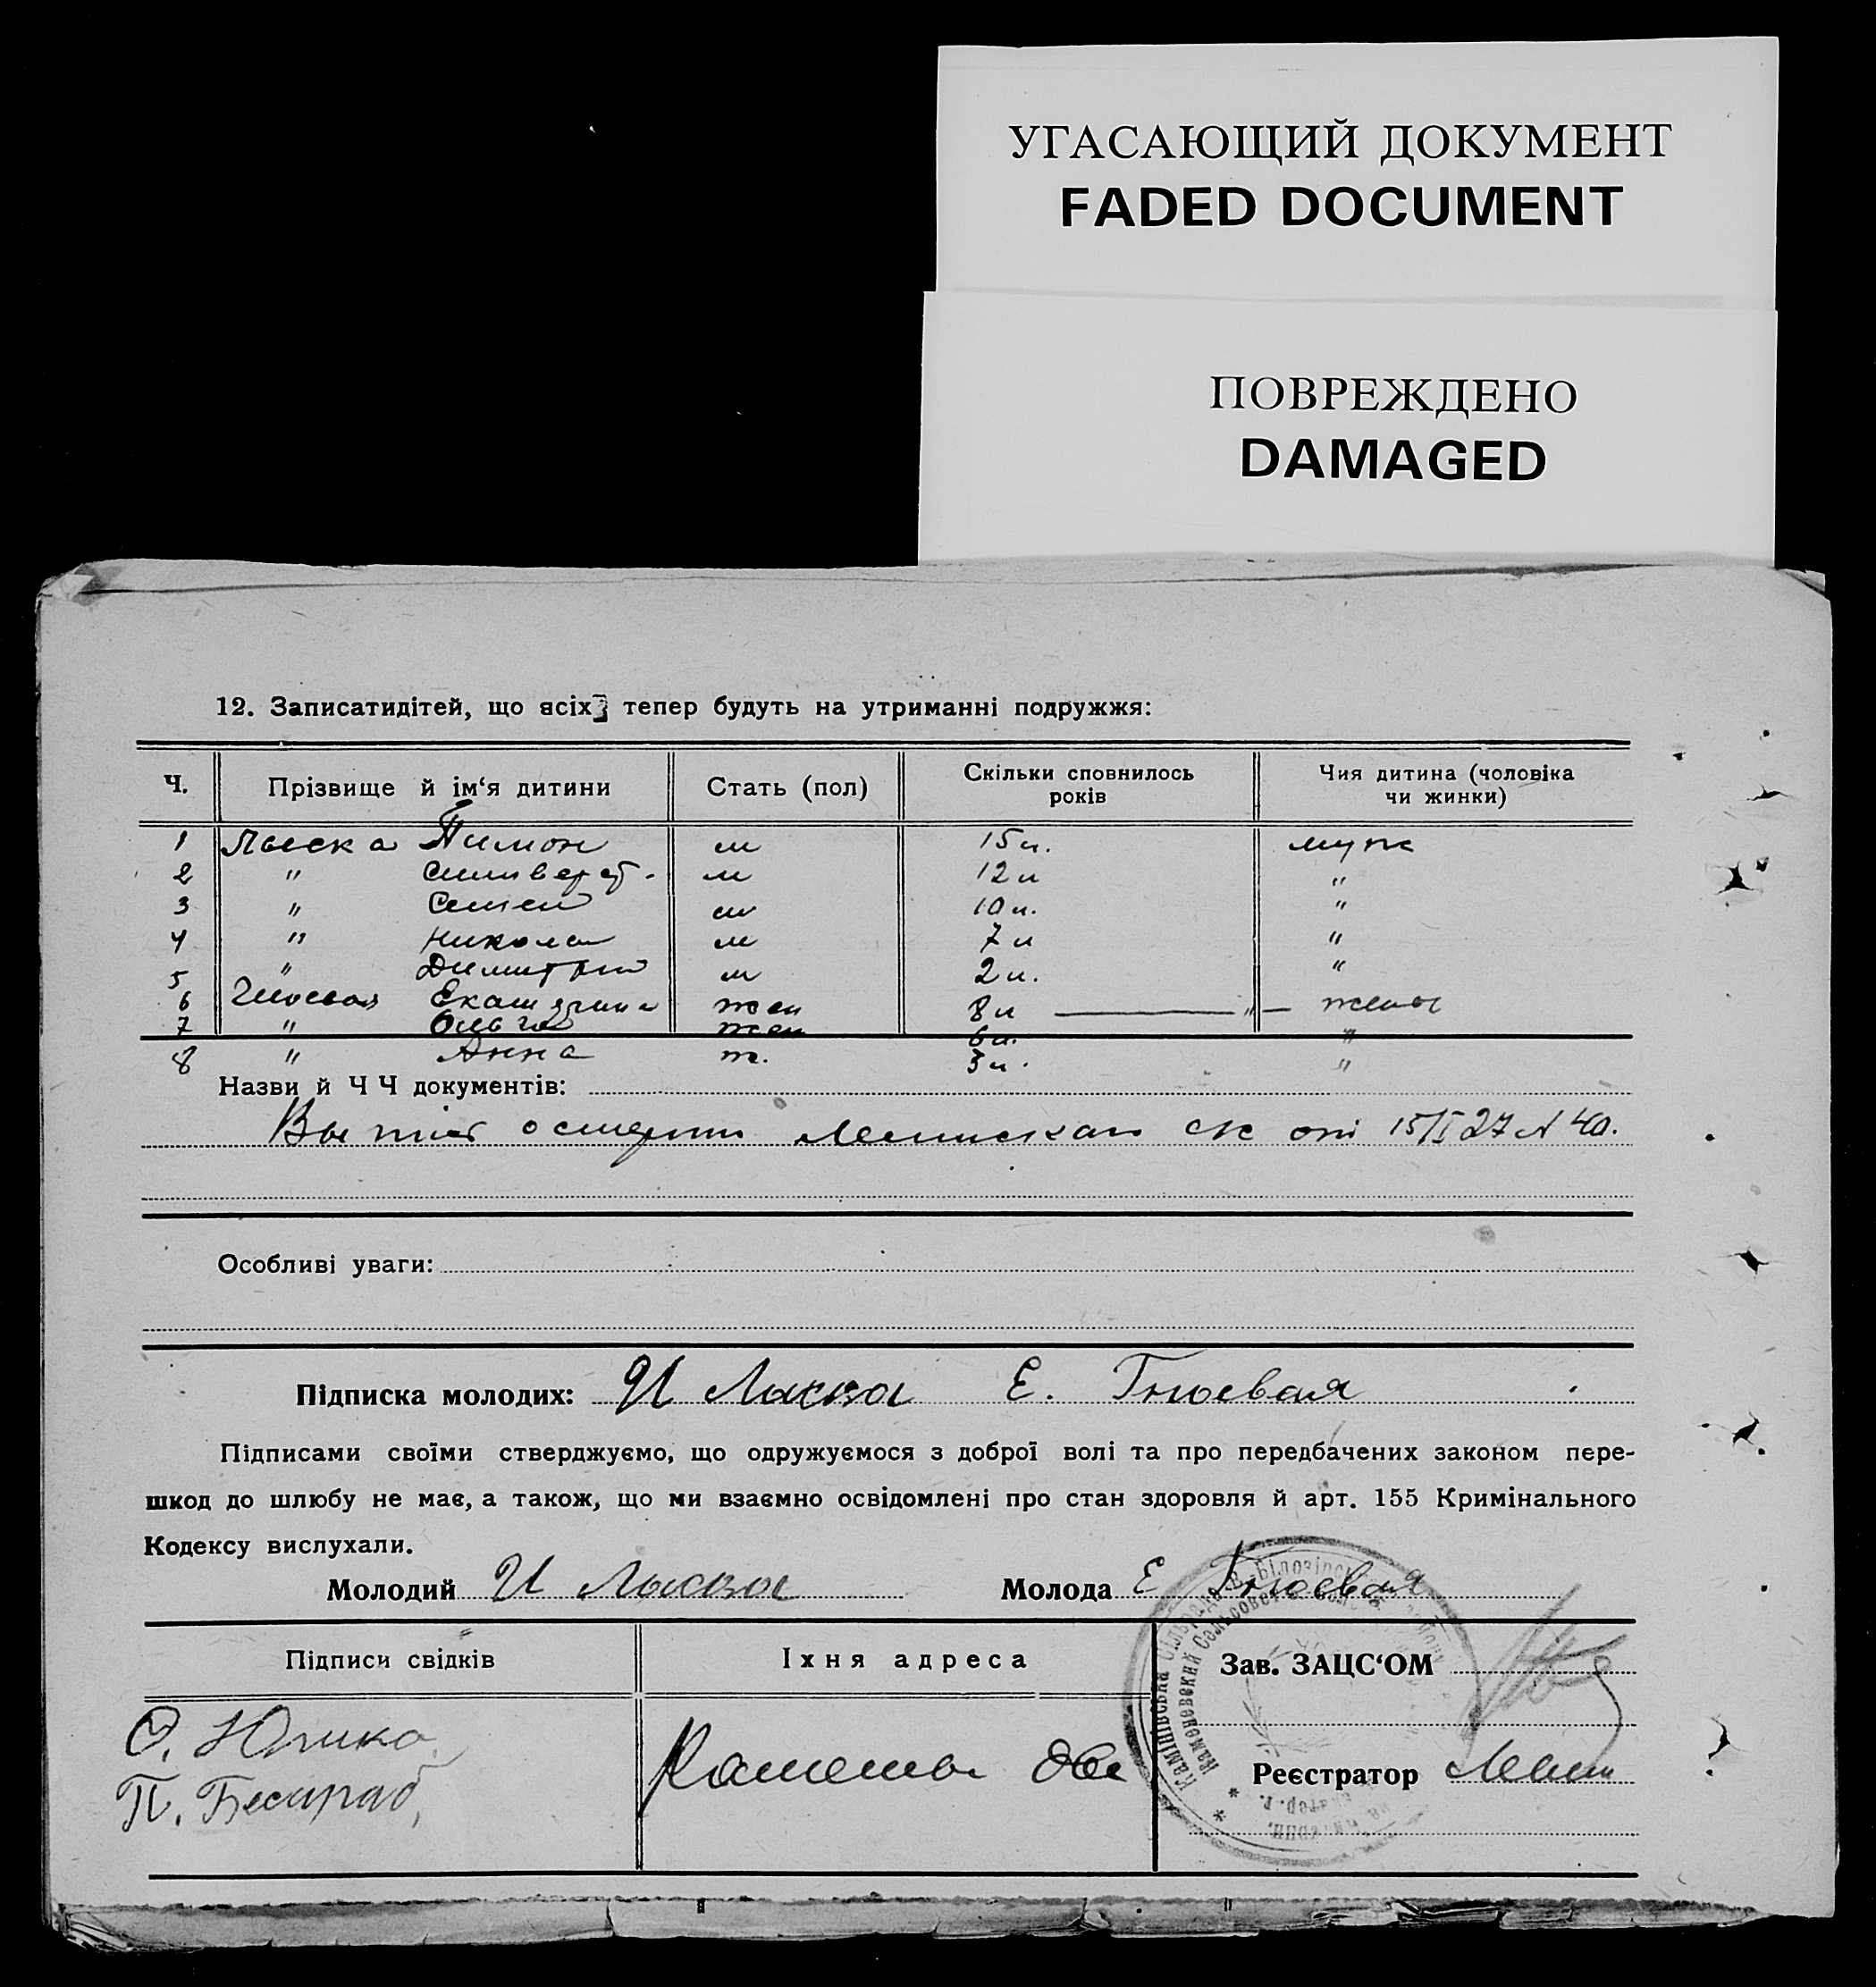 УГАСАЮЩИЙ ДОКУМЕНТ
FADED DOCUMENT
ПОВРЕЖДЕНО
DAMAGED
12. Записатидітей, що всіх тепер будуть на утриманні подружжя:
Ч. Прізвище й ім‘я дитини Стать (пол) Скільки сповнилось років Чия дитина (чоловіка чи жинки)
1 Лыска Тимон м 15 л. муж
2 " Сильверст. м 12 л "
3 " Семен м 10 л. "
4 " Николай м 7 л "
5 " Димитрий м 2 л. "
6 Гноевая Екатерина жен 8 л — " — жены
7 " Ольга жен 6 л. "
8 " Анна ж. 3 л. "
Назви й Ч Ч документів:
о смерти от 15/I 27 № 40.
Особливі уваги:
Підписка молодих: И Лыска Е. Гноевая
Підписами своїми стверджуємо, що одружуємося з доброї волі та про передбачених законом пере-
шкод до шлюбу не має, а також, що ми взаємно освідомлені про стан здоровля й арт. 155 Кримінального
Кодексу вислухали.
Молодий И Лыска Молода Е Гноевая
Підписи свідків Їхня адреса Зав. ЗАЦС‘ОМ
Камінівська Сільрада Білозірс
Каменевский Сельсовет
О. Юшко
П. Бесараб
Реєстратор